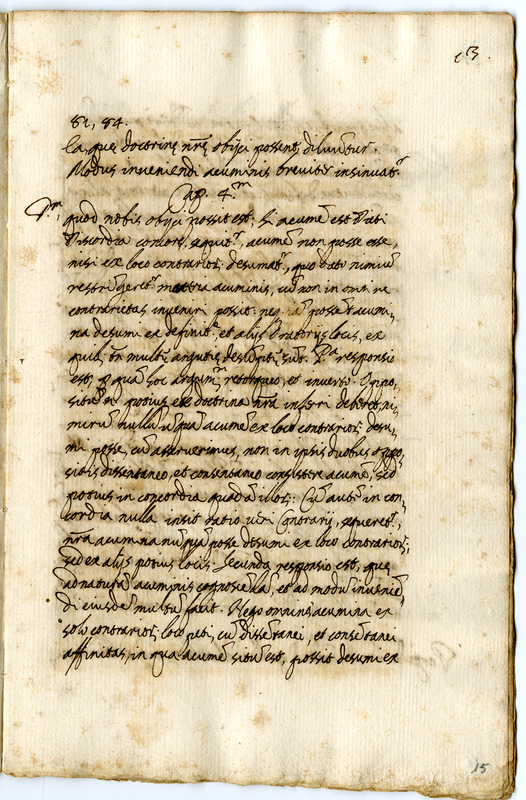 13.
82, 84.
Ea, quę doctrinę nrę obijci possent, diluuntur.
Modus inveniendi acuminis breviter insinuatr
Cap. 4.m
Pm, quod nobis obijci possit est. Si acumē est
Discordia concors, sequitr, acumē non posse esse,
nisi ex loco contrarior desumatr, quod nimiū
restringeret materia acuminis, cū non in omni re
contrarietas inveniri possit, neq. possent acumi-
na desumi ex definite, et alijs Oratorijs locis, ex
quib. tn multi argutię desūpti sūt. Pa responsio
est, qua hoc argumm retorqueo, et inverto. Oppo-
situm n. potius ex doctrina nra inferri deberet, ni-
mirū nullū uquā acumē ex loco contrarior desu-
mi posse, cū asseveremus, non in ipsis duobus oppo-
sitis dissentaneo, et consentaneo consistere acumē, sed
potius in concordia quadā illor. Cū autē in con-
cordia nulla insit ratio veri contrarij, sequeretr,
nra acumina nuquā posse desumi ex loco contrarior,
sed ex alijs potius locis. Secunda responsio est, quę
ad naturā acuminis cognoscēdā, et ad modū invenie-
di eiusdē multū facit. Nego omnino acumina ex
solo contrarior loco peti, cū dissētanei, et consētanei
affinitas, in qua acumē sitū est, possit desumi ex
15